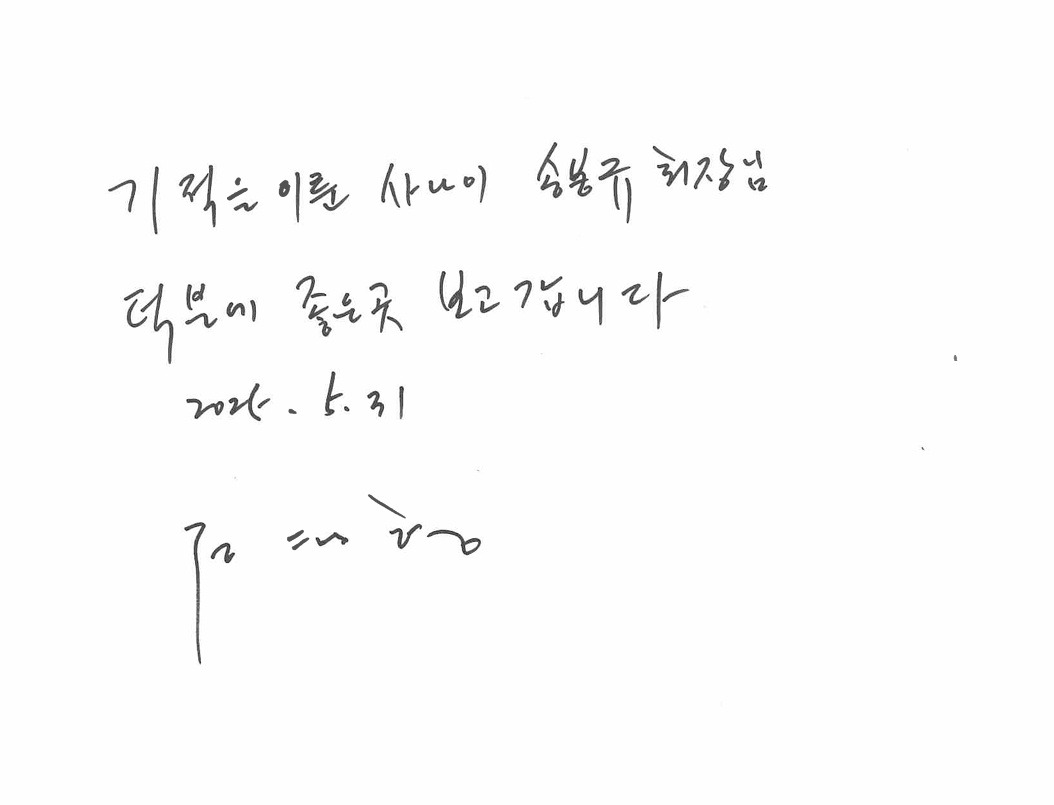 기적을 이룬 사나이 송봉규 회장님
덕분에 좋은곳 보고 갑니다
2025. 5. 31